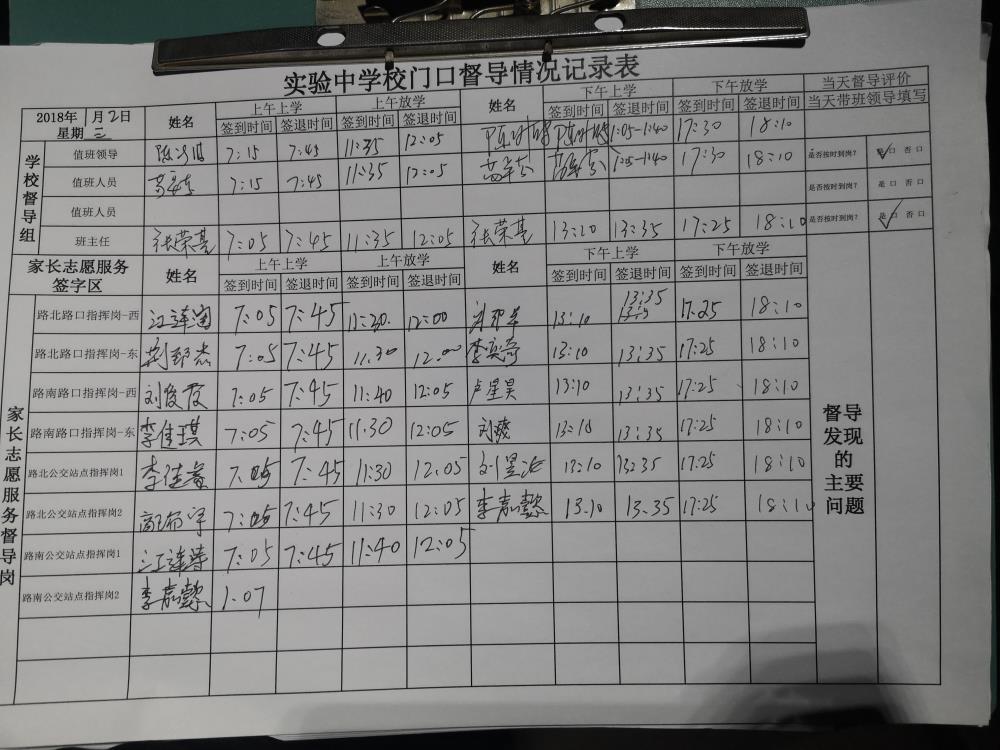 实验中学校门口督导情况记录表
2018年 1月2日 星期三 姓名 上午上学 上午放学 姓名 下午上学 下午放学 当天督导评价
签到时间 签退时间 签到时间 签退时间 签到时间 签退时间 签到时间 签退时间 当天带班领导填写
学校督导组
值班领导 7:15 7:45 11:35 12:05 1:05-1:40 17:30 18:10 是否按时到岗? 是 口 否 口
值班人员 7:15 7:45 11:35 12:05 1:05-1:40 17:30 18:10 是否按时到岗? 是 口 否 口
值班人员 是否按时到岗? 是 口 否 口
班主任 张荣亮 7:05 7:45 11:35 12:05 张荣亮 13:10 13:35 17:25 18:10
家长志愿服务签字区 姓名 上午上学 上午放学 姓名 下午上学 下午放学
签到时间 签退时间 签到时间 签退时间 签到时间 签退时间 签到时间 签退时间
家长志愿服务督导岗
路北路口指挥岗-西 7:05 7:45 11:30. 12:00 13:10 13:35 17:25 18:10
路北路口指挥岗-东 7:05 7:45 11.30 12.00 李奕奇 13:10 13:35 17:25 18:10
路南路口指挥岗-西 刘俊霞 7:05 7:45 11:40 12:05 卢星昊 13:10 13:35 17:25 18:10
路南路口指挥岗-东 李佳琪 7:05 7:45 11:30 12:05 13:10 13:35 17:25 18:10
路北公交站点指挥岗1 李佳睿 7.05 7:45 11:30 12:05 13:10 13:35 17:25 18:10
路北公交站点指挥岗2 7:05 7:45 11:30 12:05 李嘉懿 13.10 13.35 17:25 18:10
路南公交站点指挥岗1 7:05 7:45 11:40 12:05
路南公交站点指挥岗2 李嘉懿 1.07
督导发现的主要问题